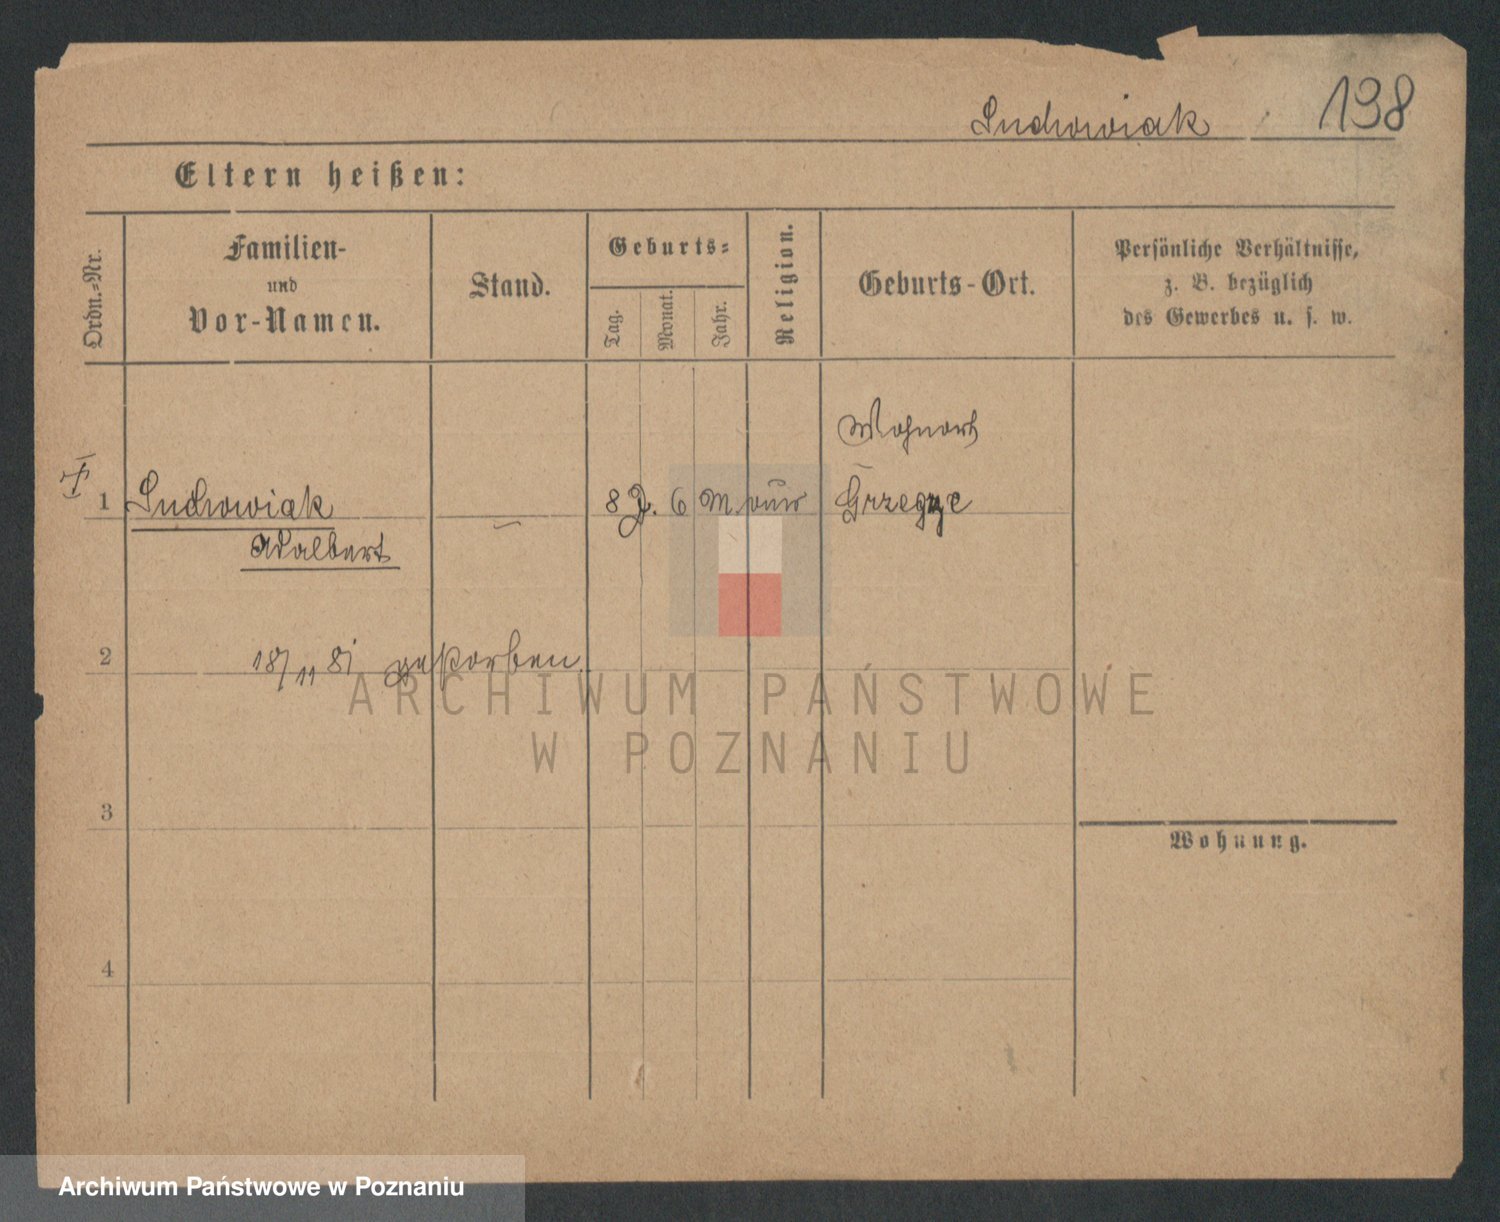 Suchowiak 198
Eltern heißen:
Ordn.-Nr.
Familien-
und
Vor-Namen.
Stand.
Geburts-
Tag.
Monat.
Jahr.
Religion.
Geburts-Ort.
Persönliche Verhältnisse,
z. B. bezüglich
des Gewerbes u. s. w.
Wohnort
1 Suchowiak 8 J. 6 M.
Adalbert
2 18/11 81 gestorben
3
Wohnung.
4
ARCHIWUM PAŃSTWOWE
W POZNANIU
Archiwum Państwowe w Poznaniu